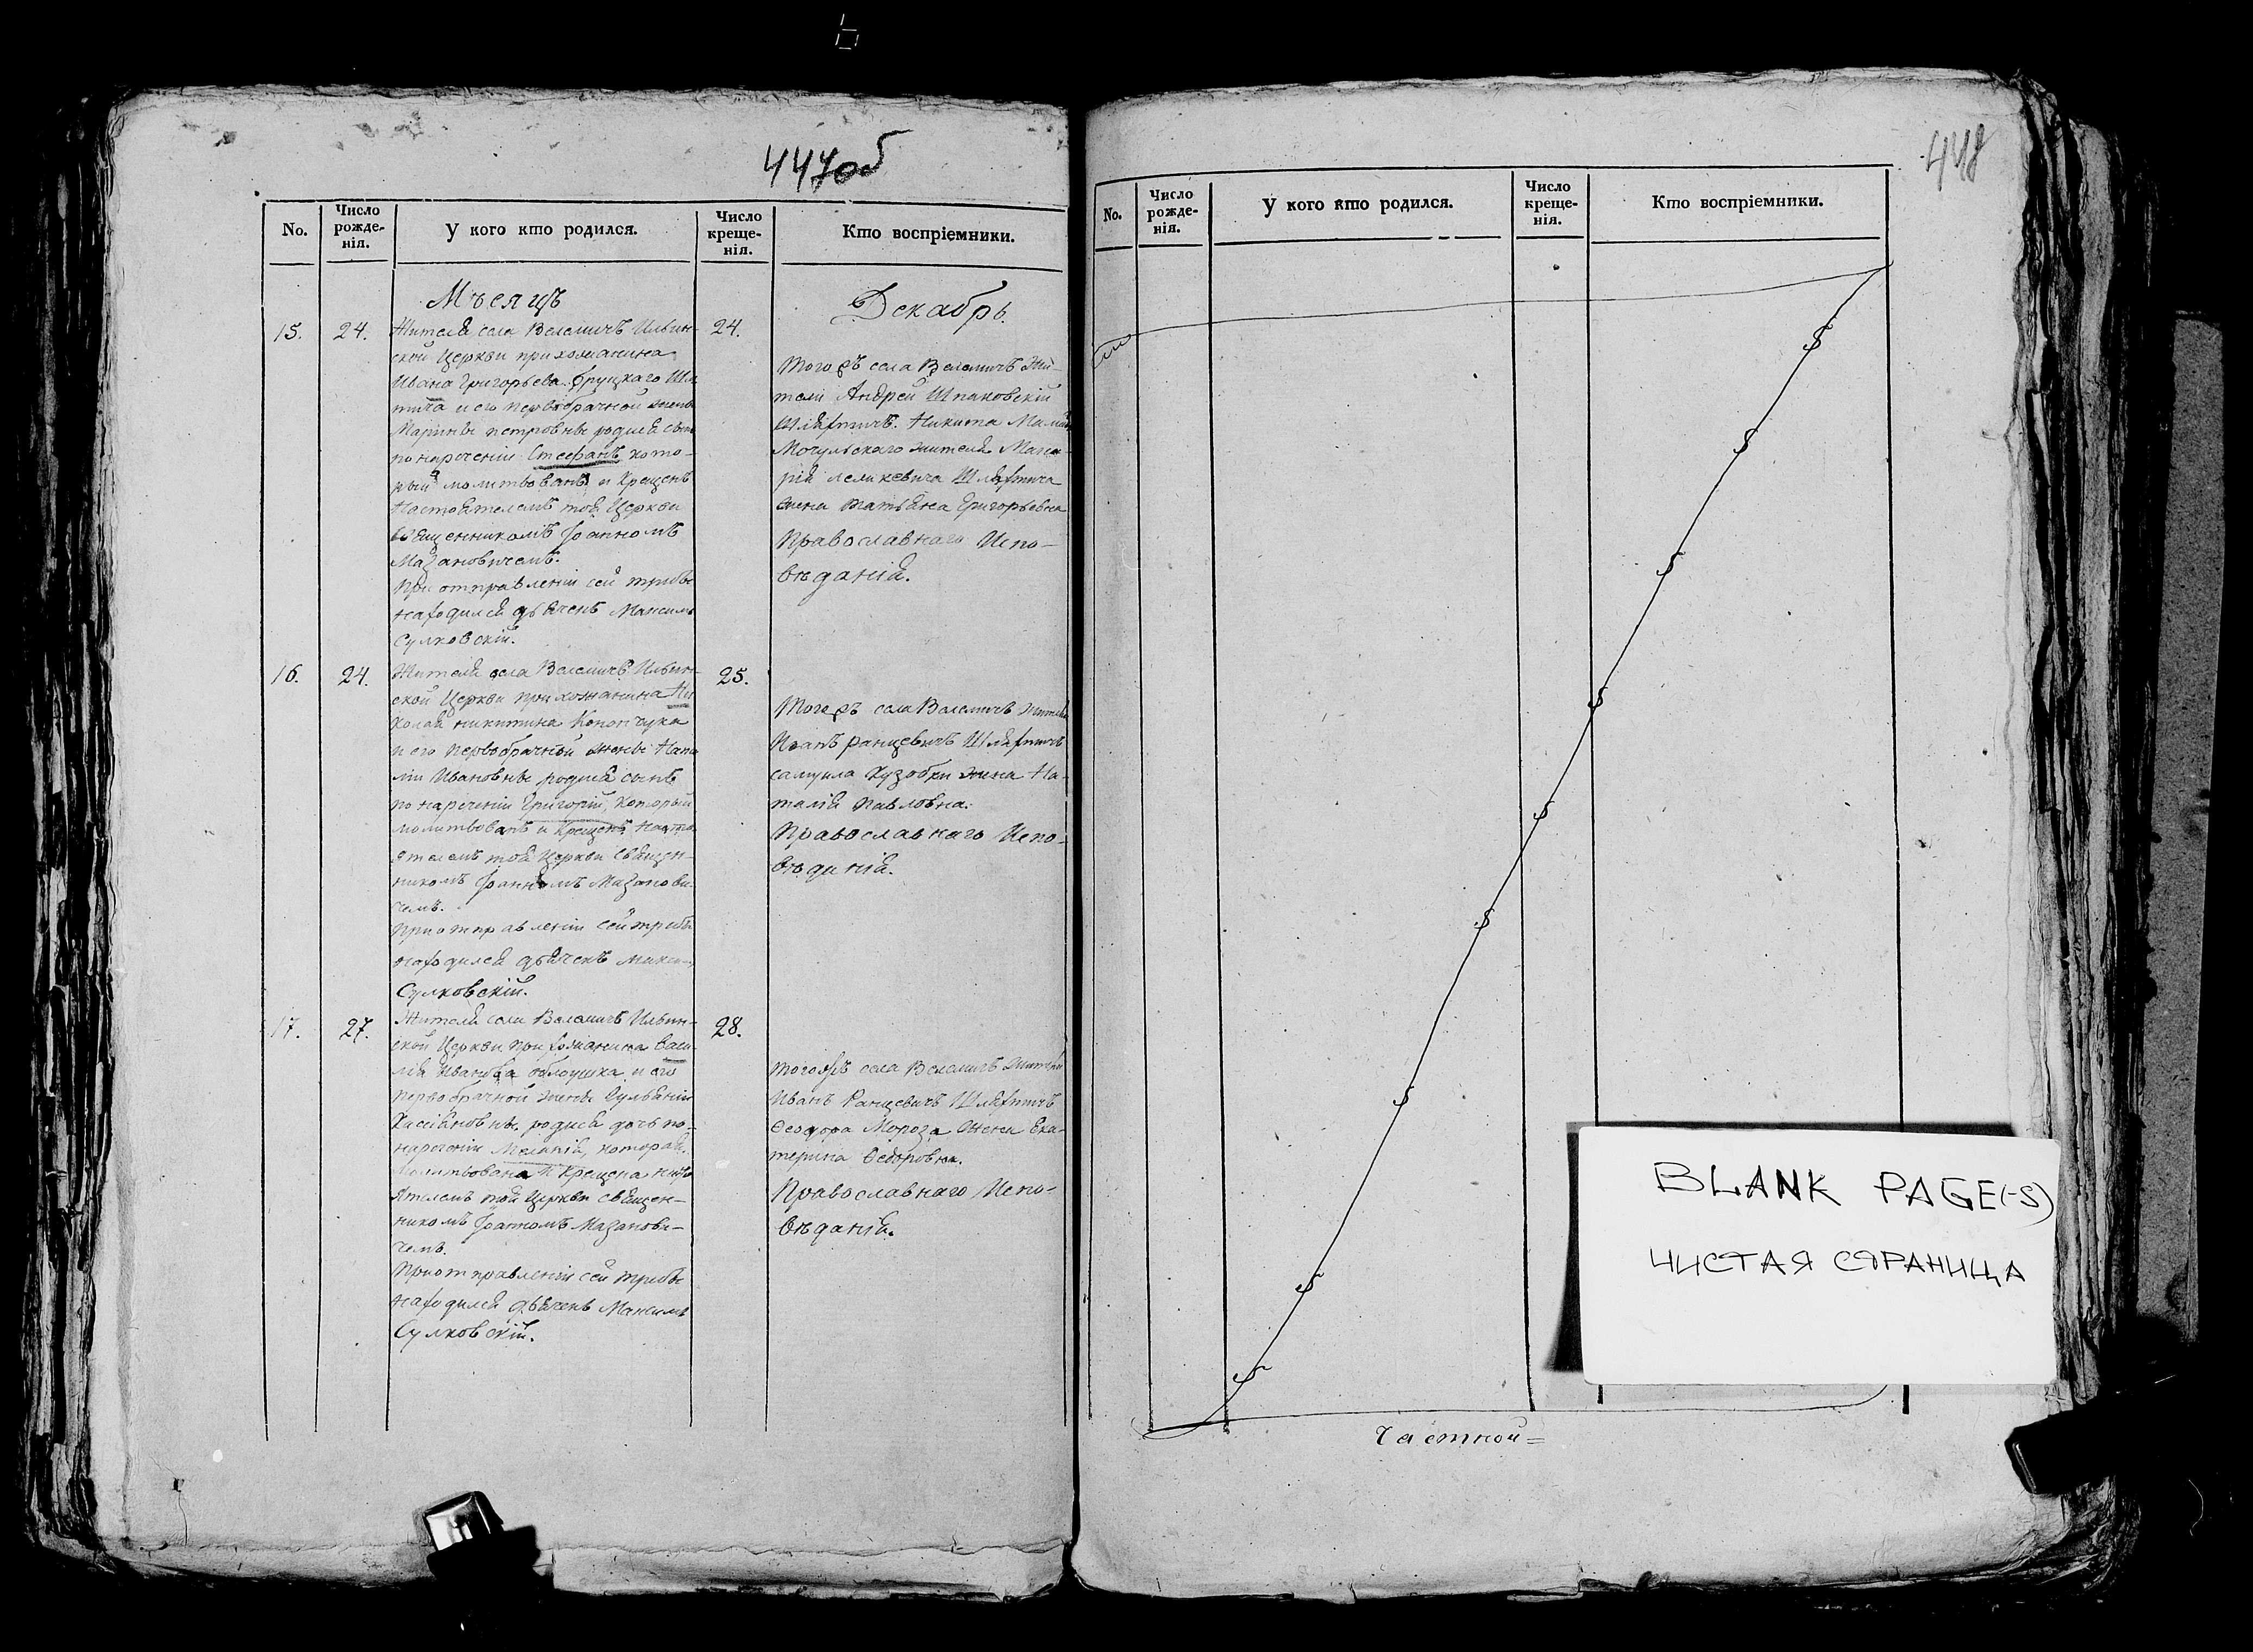 447об
No.
Число рожде-нія.
У кого кто родился.
Число креще-нія.
Кто воспріемники.
Мѣсяцъ
Декабрь.
15.
24.
Жителя села Велемичъ Ильин-
ской Церкви прихожанина
Ивана Григорьева
и его первобрачной жены
Марины Петровны родился сынъ
по наречении Стефанъ кото-
рый молитвованъ и Крещенъ
Настоятелемъ той Церкви
Священникомъ Іоанномъ
Мазановичемъ.
При отправленіи сей требы
находился дьячекъ Максимъ
Сулковскій.
24.
Тогожъ села Велемичъ Жи-
тели Андрей Шпаковскій
Шляхтичъ. Никита
жителя
Шляхтича
жена Татьяна Григорьевна
Православнаго Испо-
вѣданія.
16.
24.
Жителя села Велемичъ Ильин-
ской Церкви прихожанина Ни
колая Никитина Конончука
и его первобрачной жены
Ивановны родился сынъ
по наречении Григорій, Который
молитвованъ и Крещенъ Насто-
ятелемъ той Церкви Священ-
никомъ Іоанномъ Мазанови-
чемъ.
При отправленіи сей требы
находился дьячекъ Максимъ
Сулковскій.
25.
Тогожъ села Велемичъ жители
Иванъ Ранцевичъ Шляхтичъ
Самуила жена На-
талія Павловна.
Православнаго Испо-
вѣданія.
17.
27.
Жителя села Велемичъ Ильин-
ской Церкви прихожанина Васи-
лія Иванова и его
первобрачной жены
Кассіановны родися дочь по
наречении Меланія, которая
Молитвована и Крещена Насто
ятелемъ той Церкви Священ-
никомъ Іоанномъ Мазанови-
чемъ.
При отправленіи сей требы
находился дьячекъ Максимъ
Сулковскій.
28.
Тогожъ села Велемичъ Жители
Иванъ Ранцевичъ Шляхтичъ
Ѳеодора Мороза Жена Ека-
терина Ѳедоровна.
Православнаго Испо-
вѣданія.
448
No.
Число рожде-нія.
У кого кто родился.
Число креще-нія.
Кто воспріемники.
BLANK PAGE(-S)
ЧИСТАЯ СТРАНИЦА
Частной=